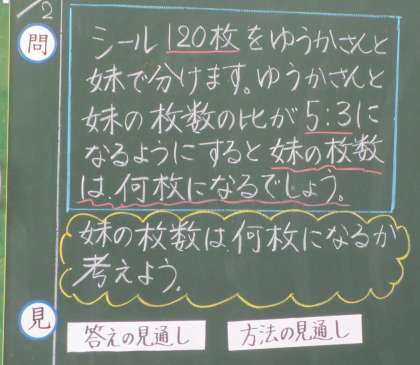 /2
問
シール120枚をゆうかさんと
妹で分けます。ゆうかさんと
妹の枚数の比が5:3に
なるようにすると妹の枚数
は何枚になるでしょう。
妹の枚数は何枚になるか
考えよう。
見
答えの見通し
方法の見通し